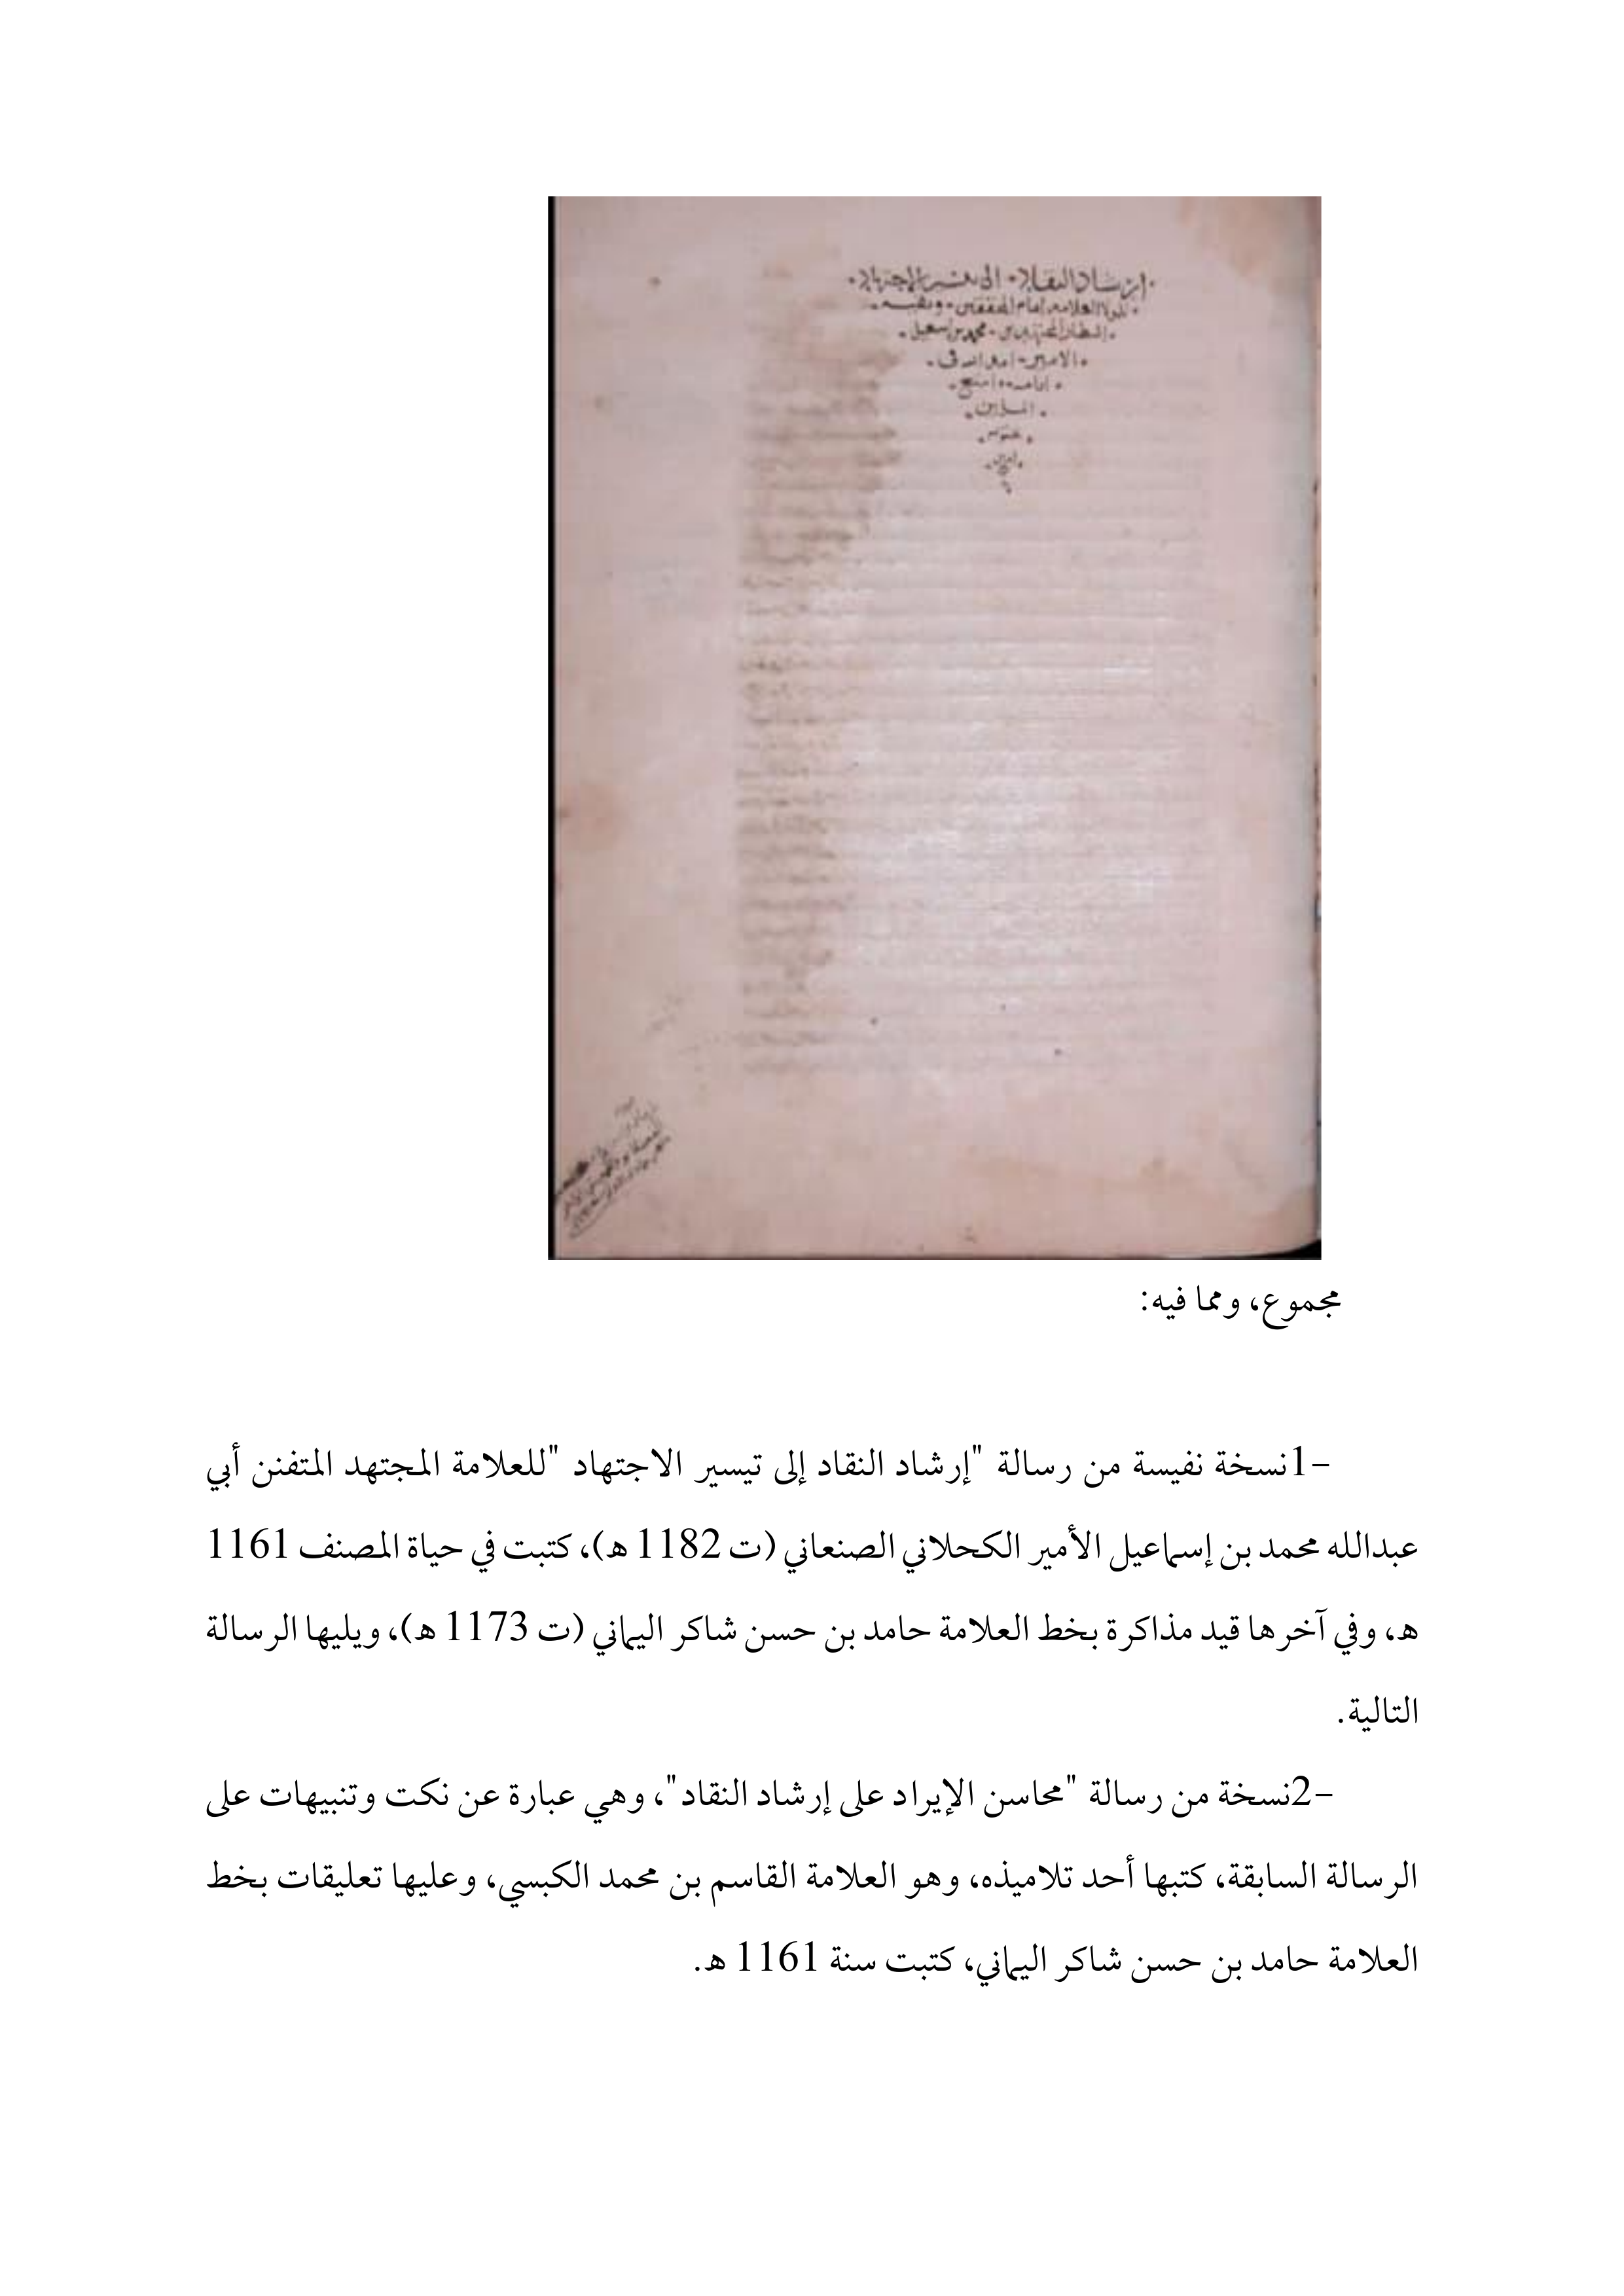 ارشاد النقاد الى تيسير الاجتهاد
محمد بن اسمعيل
الامير
مجموع، ومما فيه:
-1نسخة نفيسة من رسالة "إرشاد النقاد إلى تيسير الاجتهاد "للعلامة المجتهد المتفنن أبي
عبدالله محمد بن إسماعيل الأمير الكحلاني الصنعاني (ت 1182 هـ)، كتبت في حياة المصنف 1161
هـ، وفي آخرها قيد مذاكرة بخط العلامة حامد بن حسن شاكر اليماني (ت 1173 هـ)، ويليها الرسالة
التالية.
-2نسخة من رسالة "محاسن الإيراد على إرشاد النقاد"، وهي عبارة عن نكت وتنبيهات على
الرسالة السابقة، كتبها أحد تلاميذه، وهو العلامة القاسم بن محمد الكبسي، وعليها تعليقات بخط
العلامة حامد بن حسن شاكر اليماني، كتبت سنة 1161 هـ.